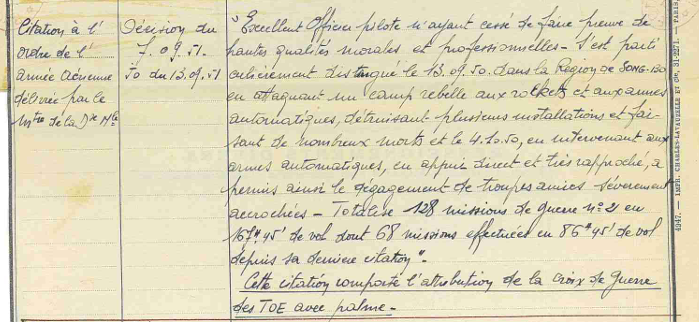 Citation à l'
ordre de l'
armée Aérienne
délivrée par le
Mtre de la Dse Nle
Décision du
7.09.51.
JO du 13.09.51
"Excellent Officier pilote n'ayant cessé de faire preuve de
hautes qualités morales et professionnelles - S'est parti
culièrement distingué le 13.09.50. dans la Région de SONG-BO
en attaquant un camp rebelle aux rockets et aux armes
automatiques, détruisant plusieurs installations et fai-
sant de nombreux morts et le 4.10.50, en intervenant aux
armes automatiques, en appui direct et très rapproché, a
permis ainsi le dégagement de troupes amies sévèrement
accrochées - Totalise 128 missions de guerre n°2 en
167h45' de vol dont 68 missions effectuées en 86h45' de vol
depuis sa dernière citation".
Cette citation comporte l'attribution de la Croix de Guerre
des TOE avec palme -
4947. - IMPR. CHARLES-LAVAUZELLE ET Cie, 31-2271. - PARIS,